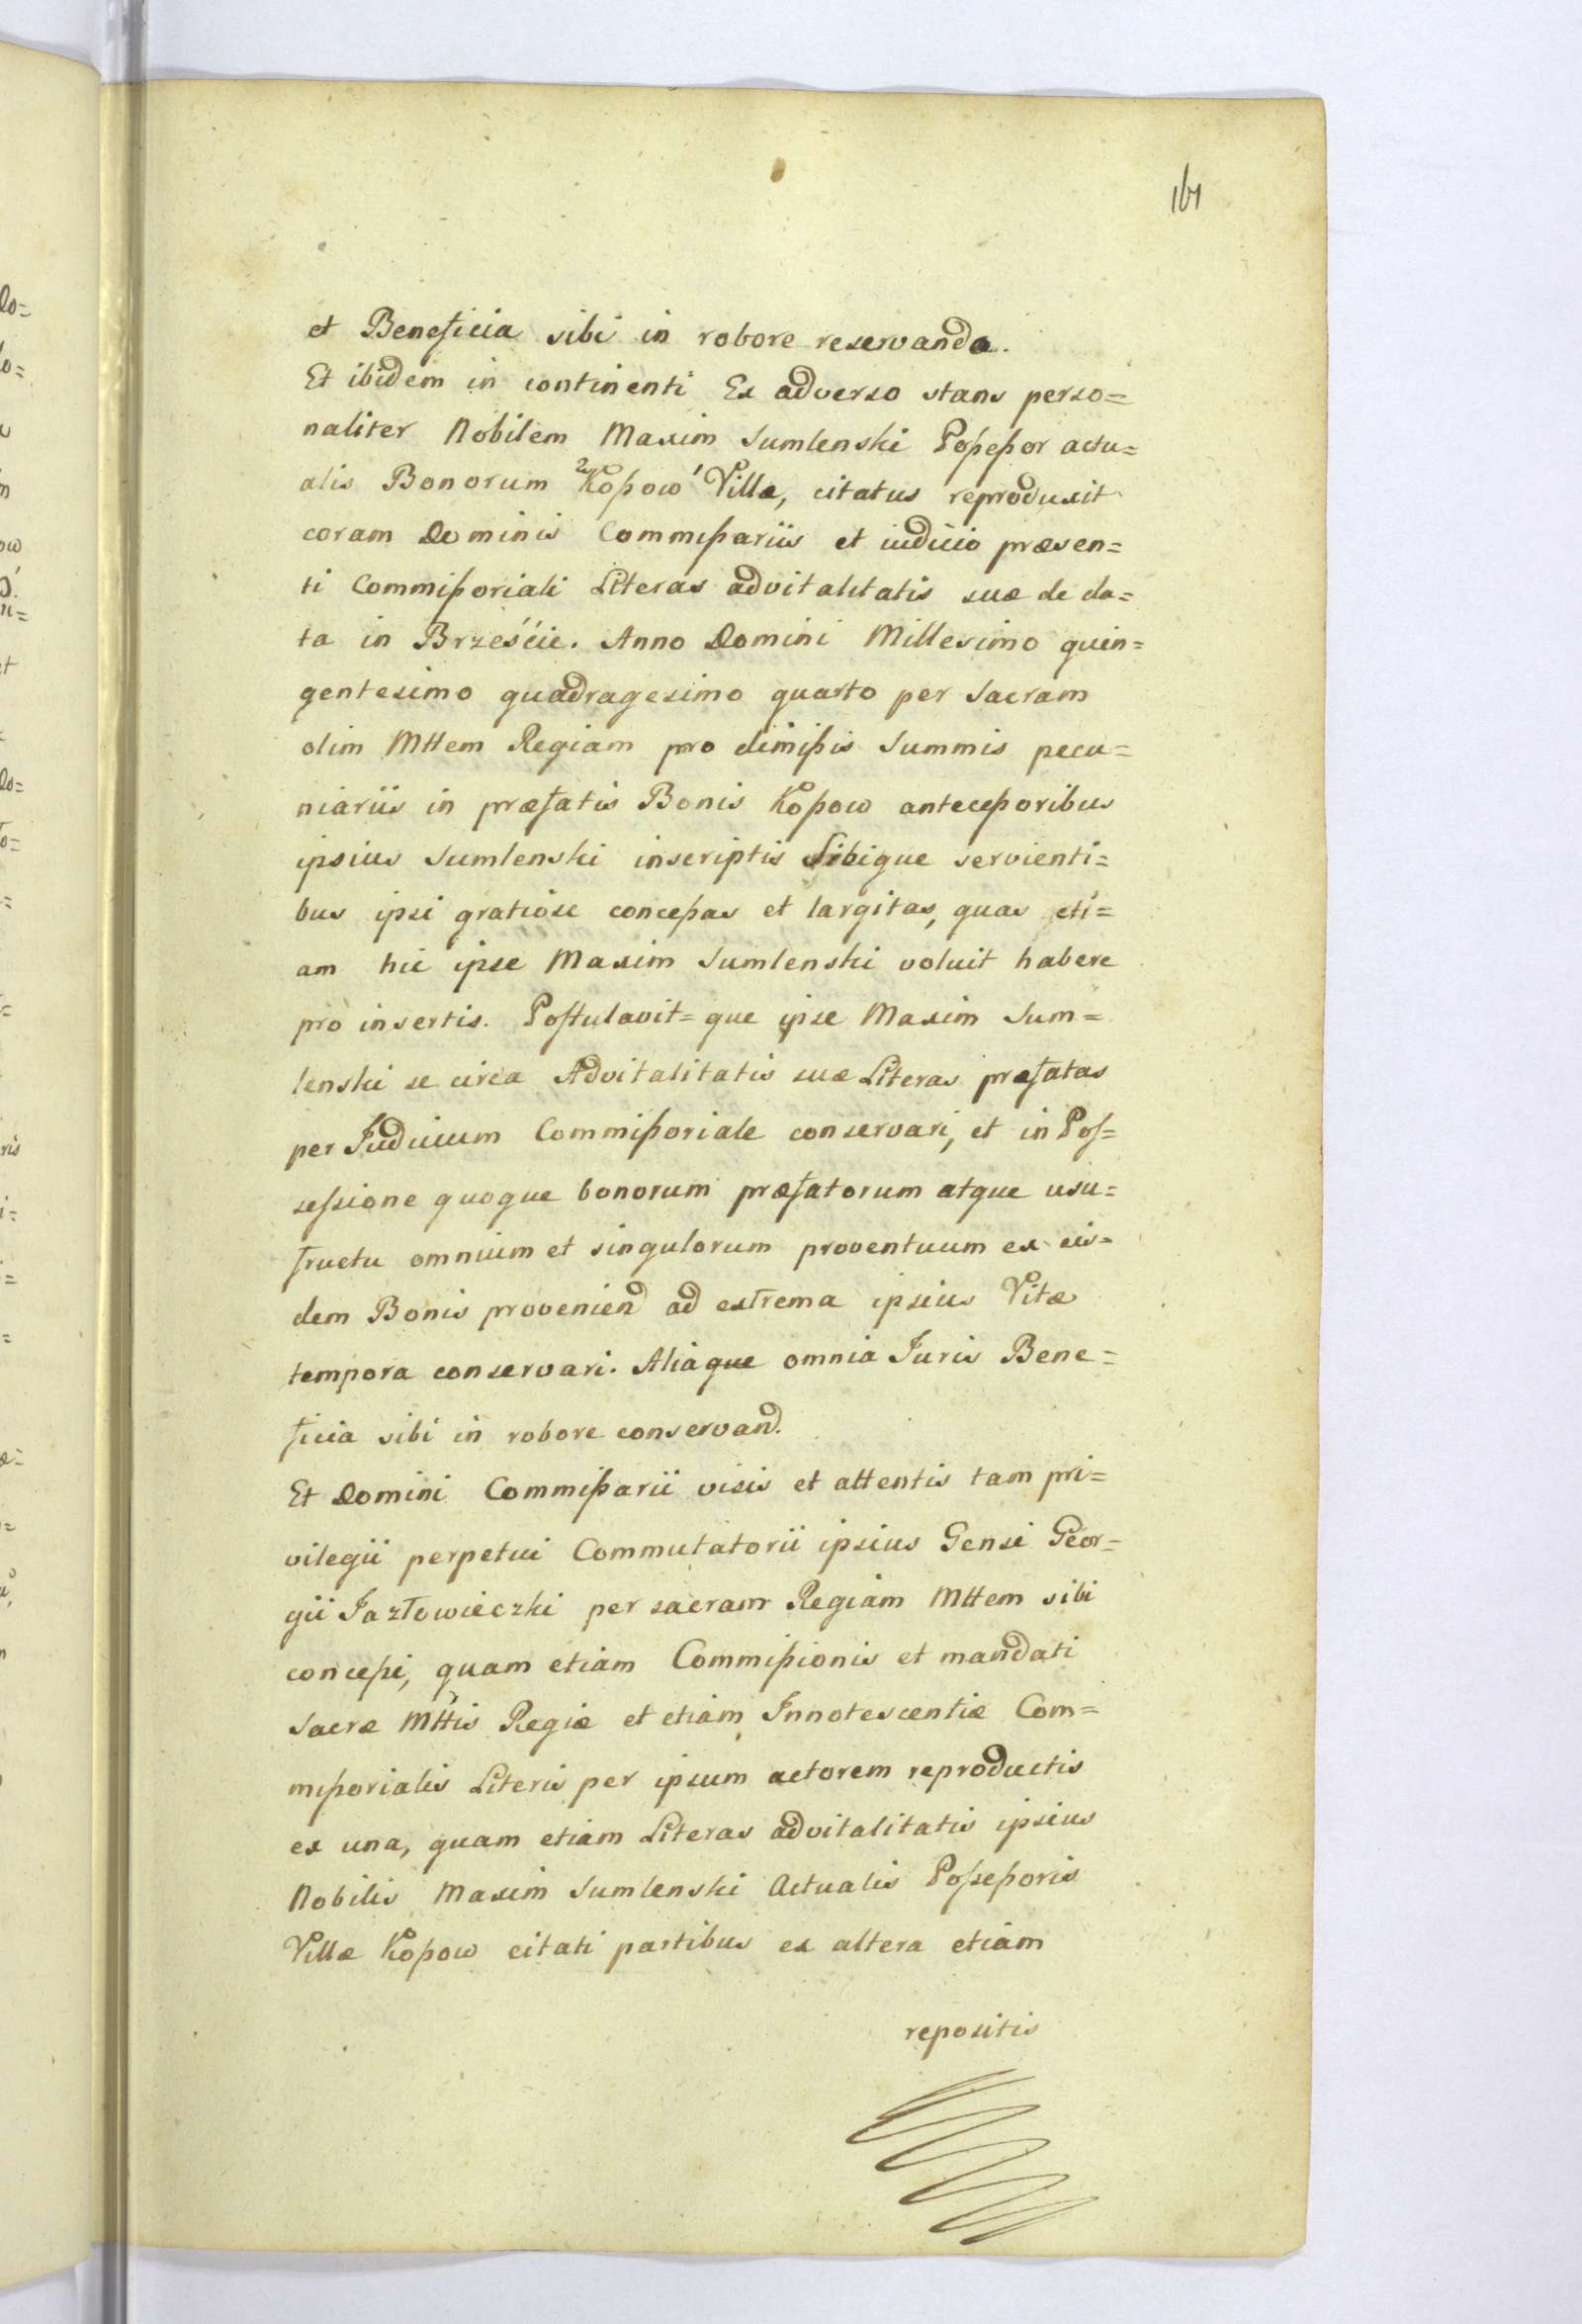 161
et Beneficia sibi in robore reservanda.
Et ibidem in continenti Ex adverso stans perso=
naliter Nobilem Maxim Sumlenski Poßeßor actu=
alis Bonorum ²Koßow ¹Villa, citatus reproduxit
coram Dominis Commißariis et iudicio præsen=
ti Commißoriali Literas advitalitatis suæ de da=
ta in Brześćie. Anno Domini Millesimo quin=
gentesimo quadragesimo quarto per Sacram
olim Mttem Regiam pro dimißis Summis pecu=
niariis in præfatis Bonis Koßow anteceßoribus
ipsius Sumlenski inscriptis Sibique servienti=
bus ipsi gratiose conceßas et largitas, quas eti=
am hic ipse Maxim Sumlenski voluit habere
pro insertis. Postulavit=que ipse Maxim Sum=
lenski se circa Advitalitatis suæ Literas præfatas
per Iudicium Commißoriale conservari, et in Pos=
seßione quoque bonorum præfatorum atque usu=
fructu omnium et singulorum proventuum ex eis=
dem Bonis proveniend ad extrema ipsius Vitæ
tempora conservari. Aliaque omnia Iuris Bene=
ficia sibi in robore conservand.
Et Domini Commißarii visis et attentis tam pri=
vilegii perpetui Commutatorii ipsius Gensi Geor=
gii Jazłowieczki per sacram Regiam Mttem sibi
conceßi, quam etiam Commißionis et mandati
Sacræ Mttis Regiæ et etiam Innotescentiæ Com=
mißorialis Literis per ipsum actorem reproductis
ex una, quam etiam Literas advitalitatis ipsius
Nobilis Maxim Sumlenski Actualis Poßeßoris
Villæ Koßow citati partibus ex altera etiam
repositis